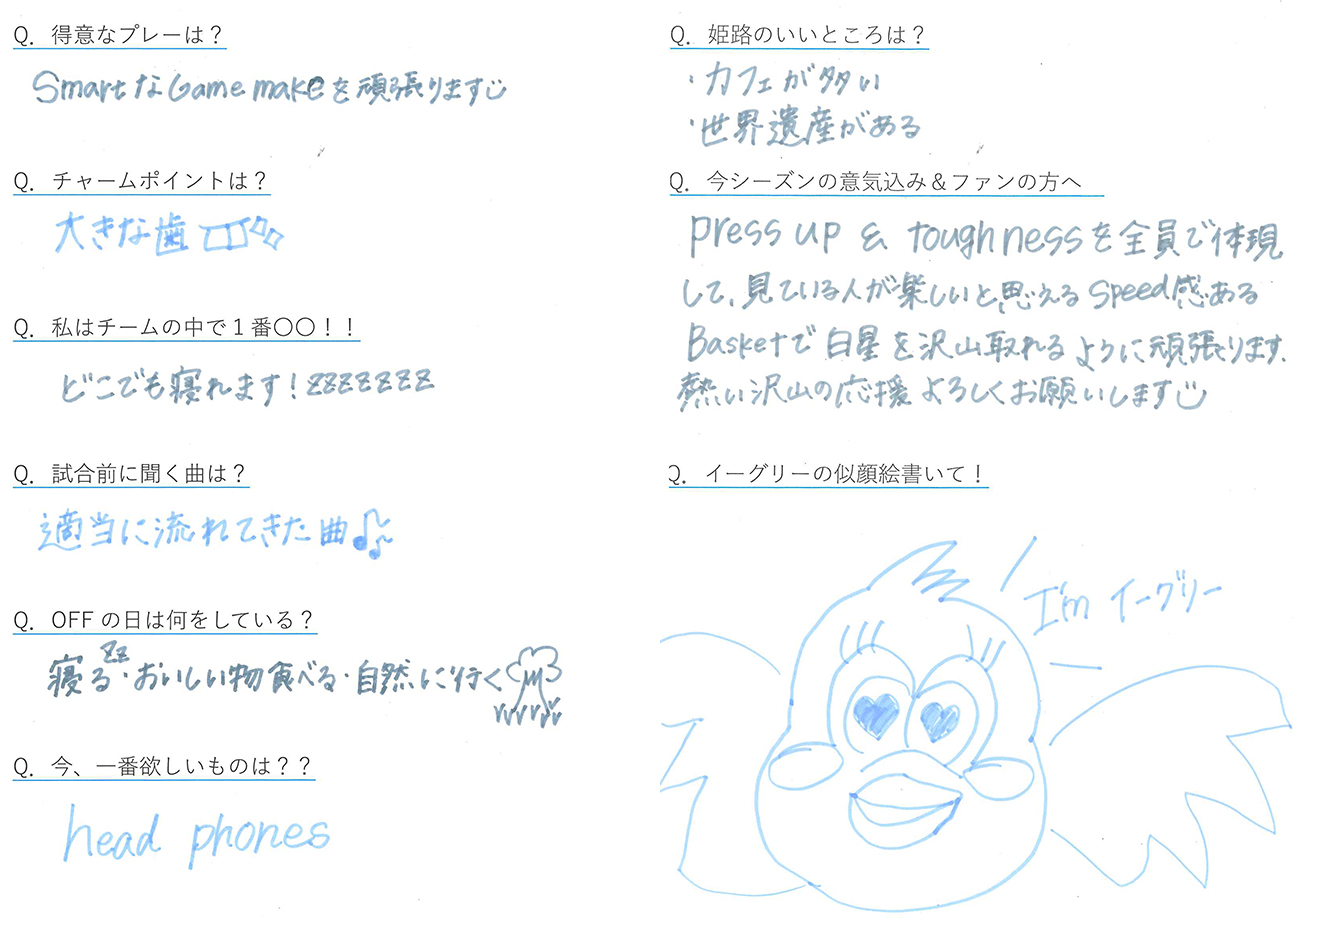 Q. 得意なプレーは？
SmartなGame makeを頑張ります
Q. チャームポイントは？
大きな歯
Q. 私はチームの中で１番〇〇！！
どこでも寝れます！zzzzzzz
Q. 試合前に聞く曲は？
適当に流れてきた曲♪
Q. OFF の日は何をしている？
zz
寝る・おいしい物食べる・自然に行く
Q. 今、一番欲しいものは？？
head phones
Q. 姫路のいいところは？
・カフェが多い
・世界遺産がある
Q. 今シーズンの意気込み＆ファンの方へ
press up & toughnessを全員で体現
して、見ている人が楽しいと思えるspeed感ある
Basketで白星を沢山取れるように頑張ります.
熱い沢山の応援よろしくお願いします
Q. イーグリーの似顔絵書いて！
I'm イーグリー